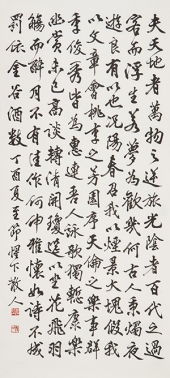 夫天地者萬物之逆旅光陰者百代之過
客而浮生若夢為歡幾何古人秉燭夜
遊良有以也況陽春召我以煙景大塊假我
以文章會桃李之芳園序天倫之樂事群
季俊秀皆為惠連吾人詠歌獨慚康樂
幽賞未已高談轉清開瓊筵以坐花飛羽
觴而醉月不有佳作何伸雅懷如詩不成
罰依金谷酒數 丁酉夏王 下散人